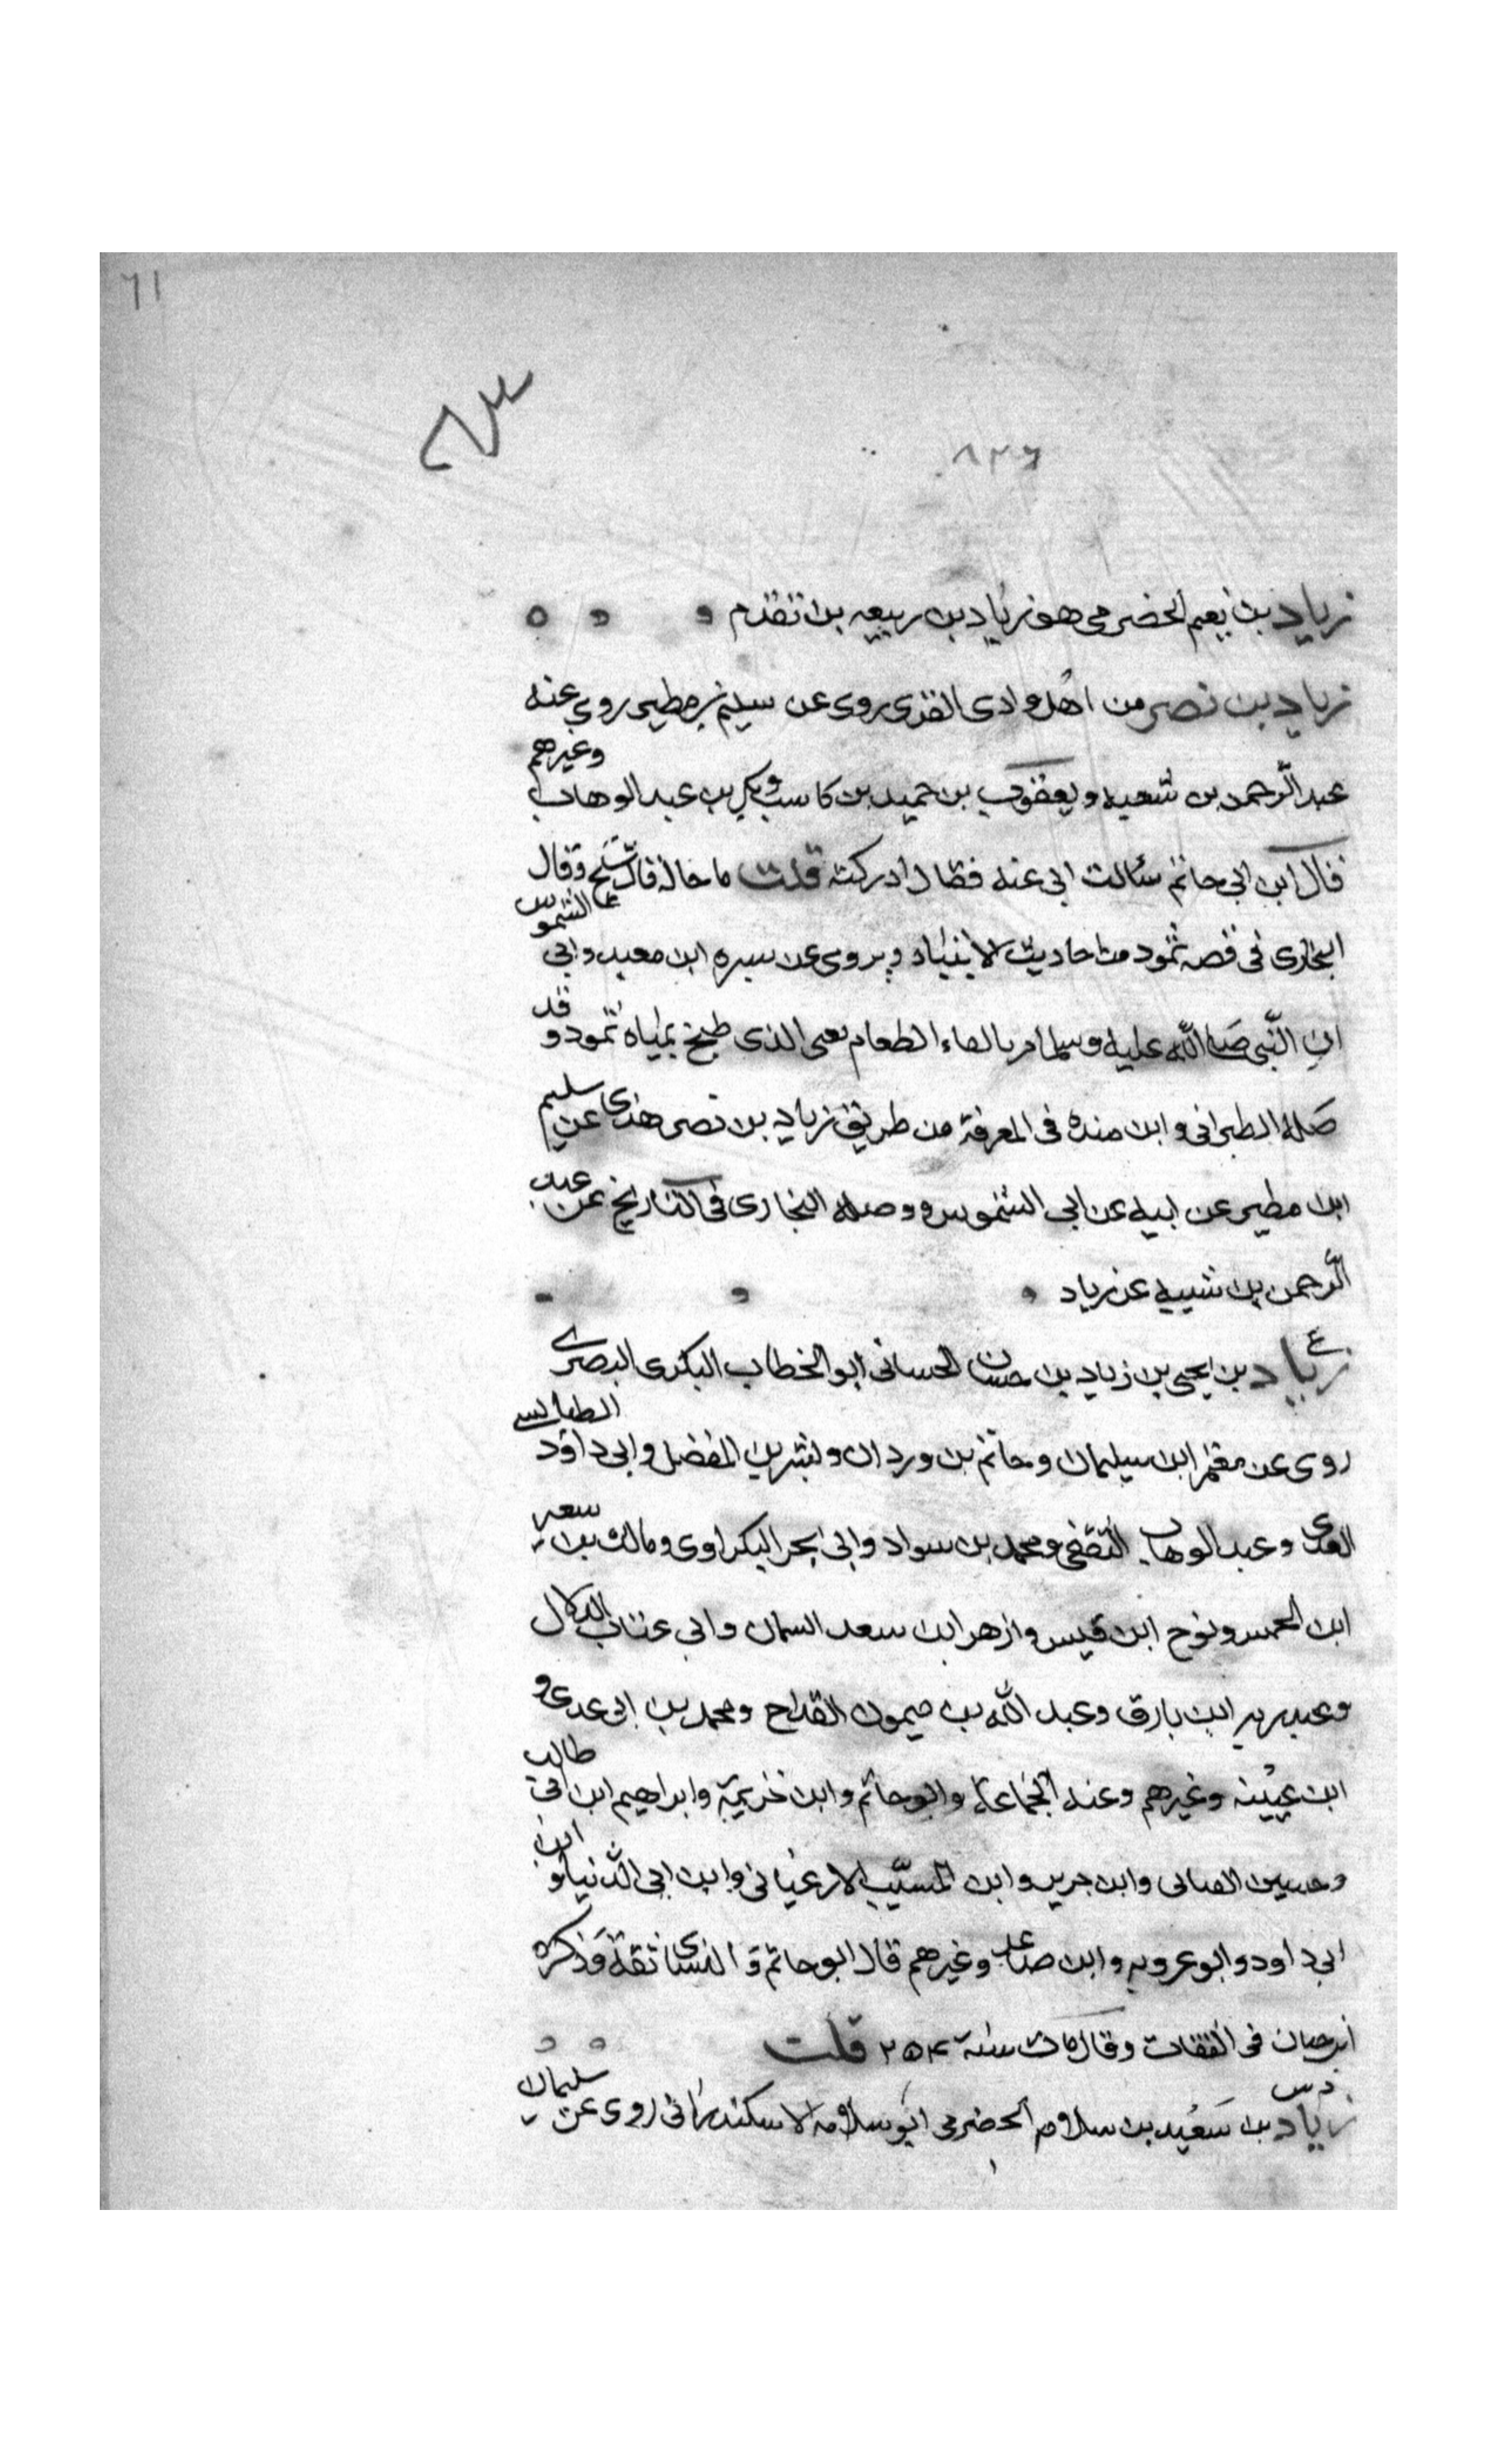 ٦١
٨٣
٨٢٦
زياد بن نعيم الحضرمي هو زياد بن ربيعه بن تقدم
زياد بن نصر من اهل وادى القرى روى عن سليم بن مطير روى عنه
عبد الرحمن بن شعيبه ويعقوب بن حميد بن كاسب وبكر بن عبد الوهاب وغيرهم
قال ابن ابى حاتم سئالت ابى عنه فقال ادركته قلت ما حاله قال شيخ وقال
البخارى فى قصه ثمود من احاديث الانبياء ويروى عن سبره ابن معبد وابى الشموس
ان النبى صلى الله عليه وسلم امر بالقاء الطعام يعنى الذى طبخ بمياه ثمود وقد
صله الطبرانى وابن منده فى المعرفة من طريق زياد بن نصر هذا عن سليم
ابن مطير عن ابيه عن ابى الشموس ووصله البخارى فى التاريخ عن عبد
الرحمن بن شيبه عن زياد
ع
زياد بن يحيى بن زياد بن حسان الحسانى ابو الخطاب البكرى البصرى
روى عن معتمر ابن سيلمان وحاتم بن وردان وبشر بن المفضل وابى داود الطيالسى
وعبد الوهاب الثقفى ومحمد بن سواد وابى بحر البكراوى ومالك بن سعير
ابن الخمس ونوح ابن قيس وازهر ابن سعد السمان وابى عتاب الدلال
وعبد ربه ابن بارق وعبد الله بن ميمون القداح ومحمد بن ابى عدى و
ابن عيينه وغيرهم وعنه الجماعة وابو حاتم وابن خزيمة وابراهيم ابن ابى طالب
وحسين القبانى وابن جرير وابن المسيب الارغيانى وابن ابى الدنيا و ابن
ابى داود وابو عروبه وابن صاعد وغيرهم قال ابو حاتم و النسائى ثقة وذكره
ابن حبان فى الثقات وقال مات سنة ٢٥٤ قلت
د س
زياد بن سعيد بن سلام الحضرمى ابو سلامه الاسكندرانى روى عن سليمان